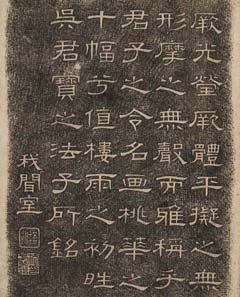 厥光瑩厥體平擬之無
形摩之無聲而雅稱乎
君子之令名画桃華之
十幅兮值樓雨之初晴
吳君寶之法子所銘
閒室